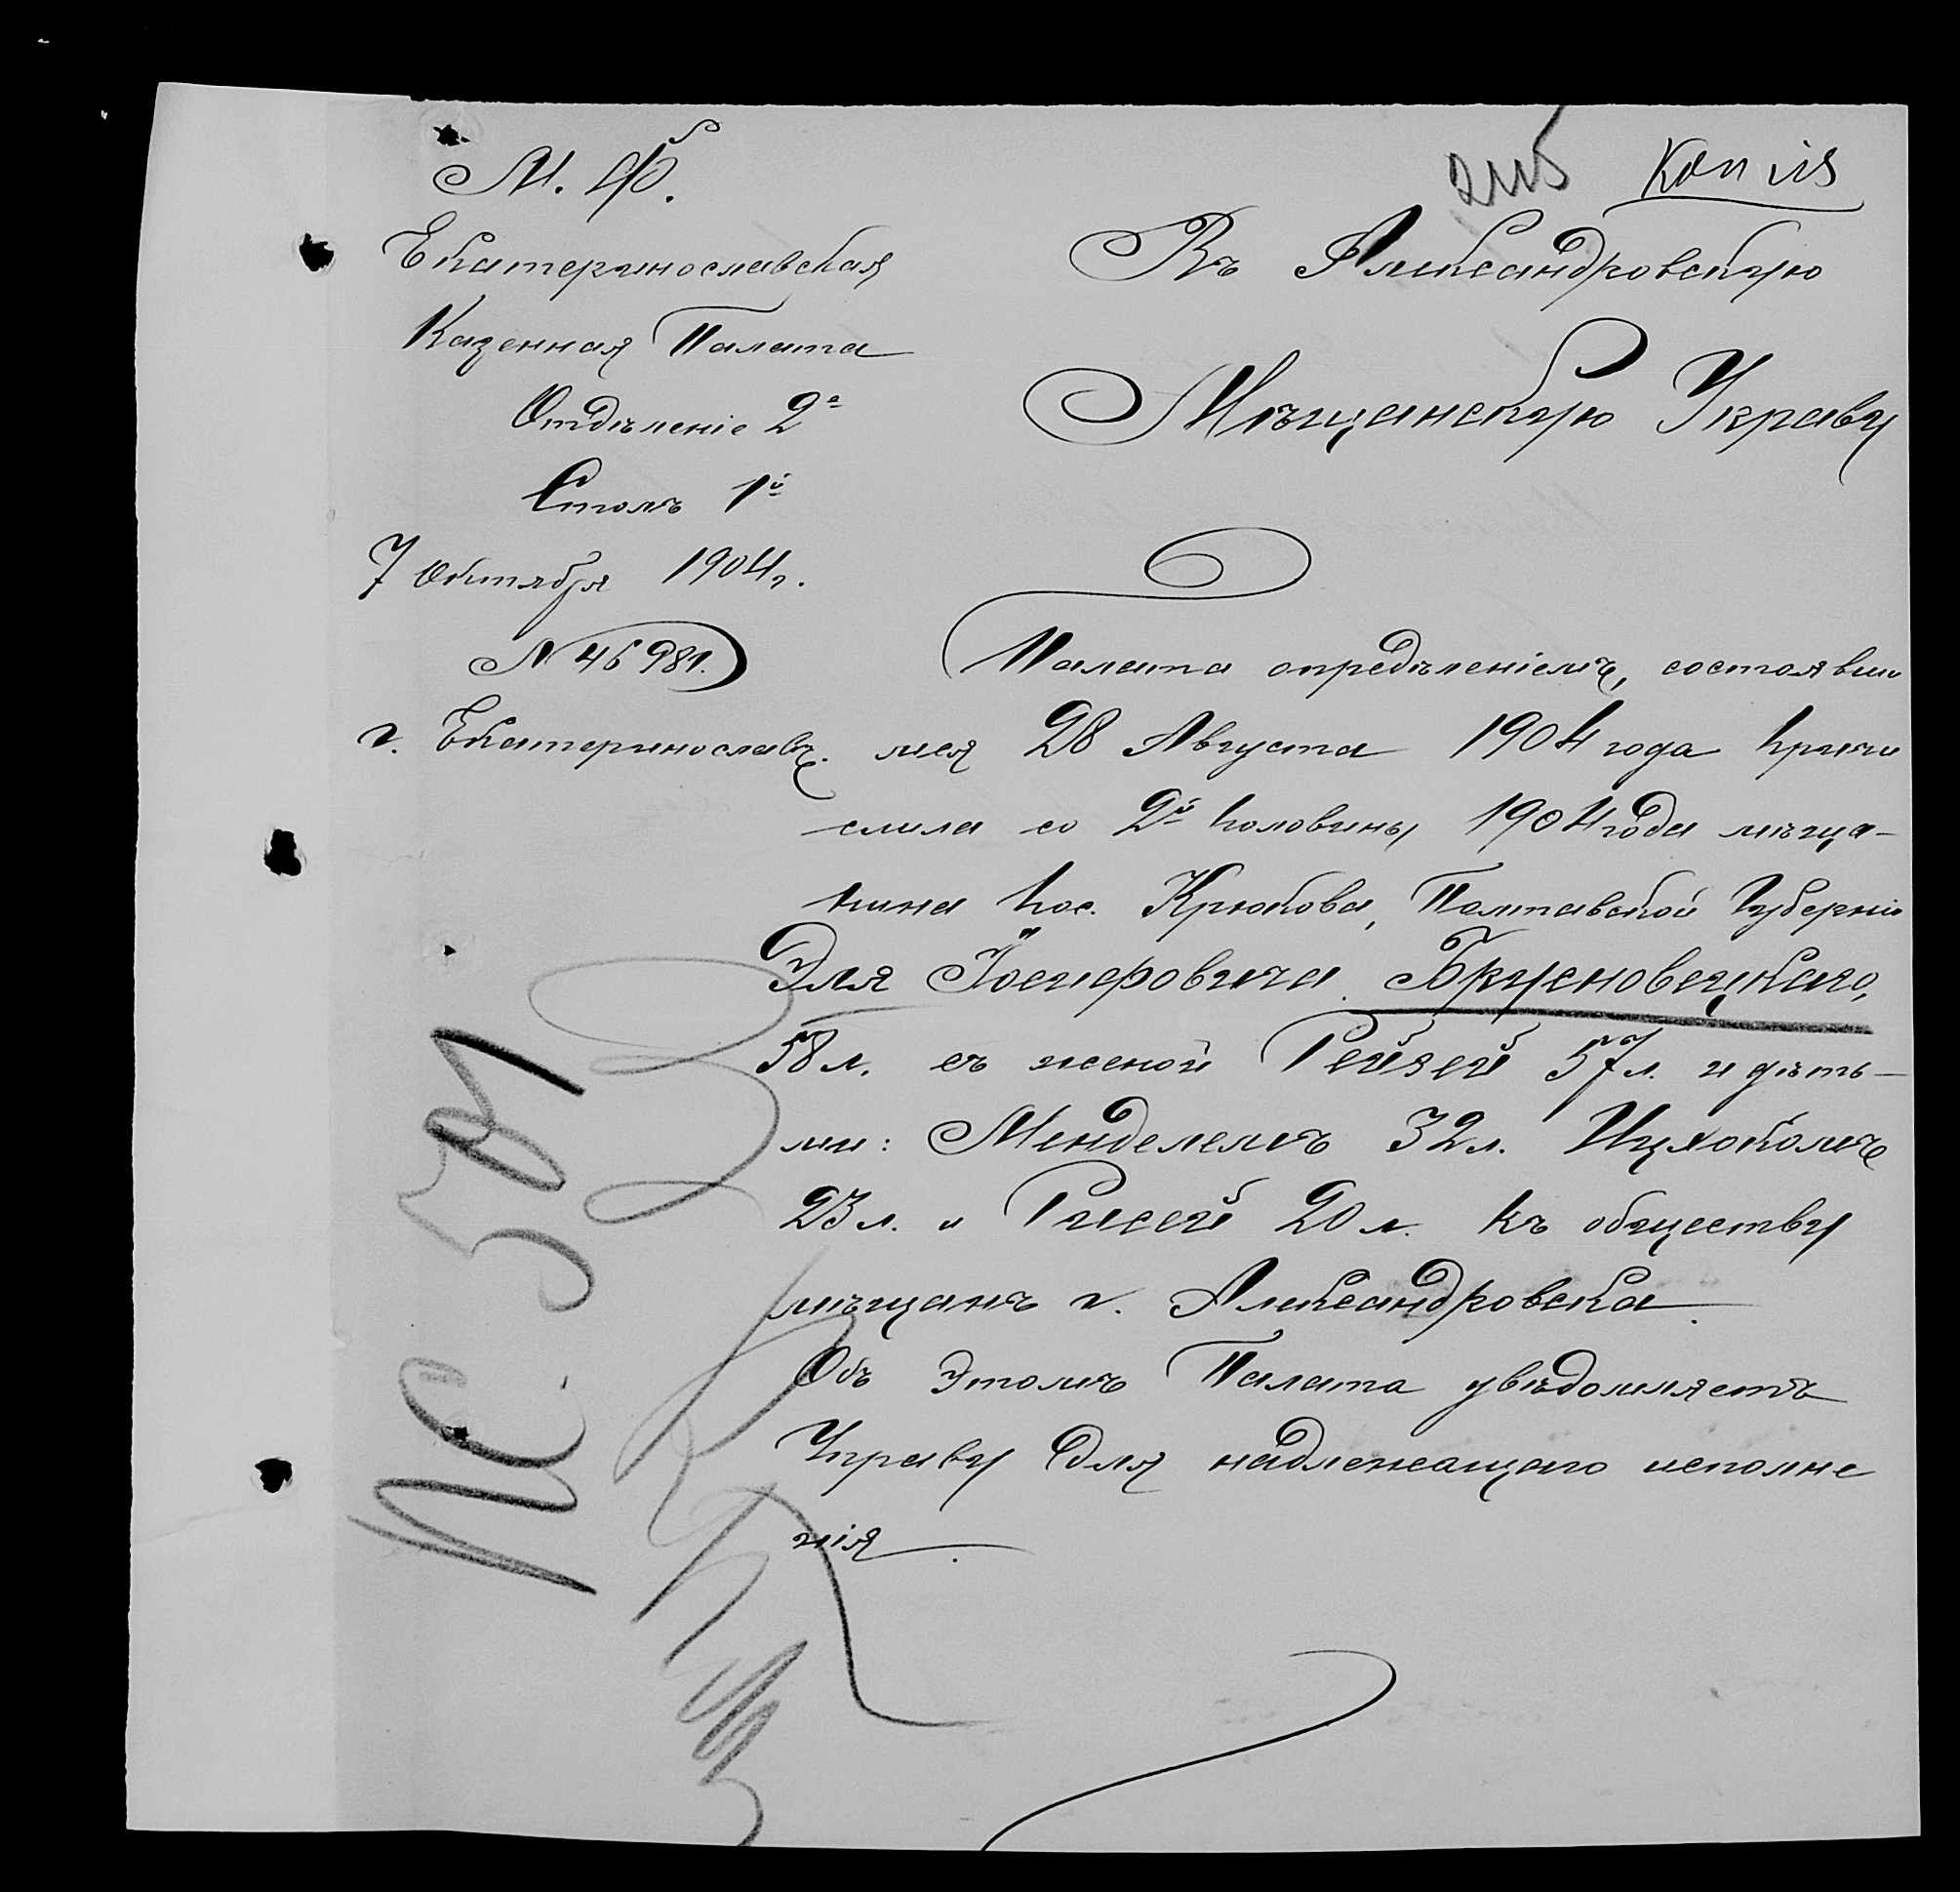 Копія
М. Ф.
Екатеринославская
Казенная Палата
Отдѣленіе 2е
Столъ 1й
7 Октября 1904 г.
N 46981.
г. Екатеринославъ.
Въ Александровскую
Мѣщанскую Управу
Палата опредѣленіемъ, состоявши
мся 28 Августа 1904 года причи
слила со 2й половины 1904 года мѣща-
нина пос. Крюкова, Полтавской Губерніи
Эля Іосифовича Брусновецкаго,
58 л. съ женой Рейзей 57 л. и дѣть-
ми: Менделемъ 32 л. Ицхокомъ
23 л. и Рисей 20 л. къ обществу
мѣщанъ г. Александровска.
Объ этомъ Палата увѣдомляетъ
Управу для надлежащаго исполне
нія.